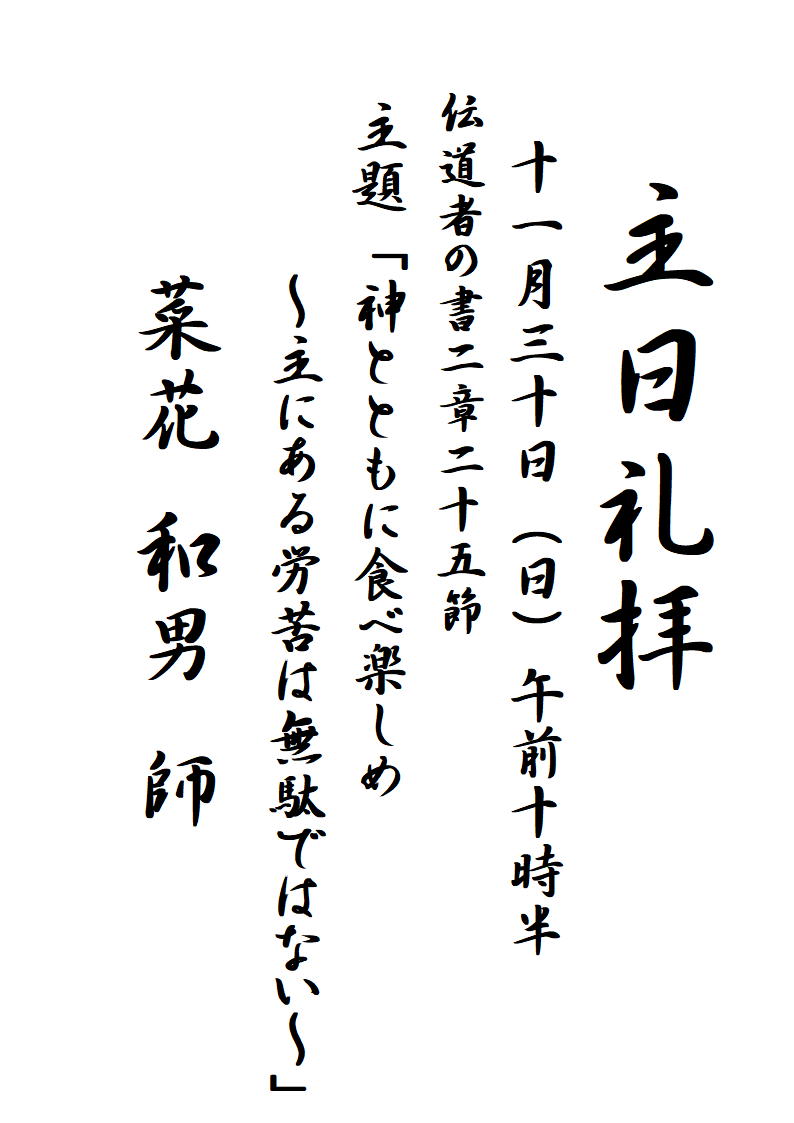 主日礼拝
十一月三十日（日） 午前十時半
伝道者の書二章二十五節
主題「神とともに食べ楽しめ
～主にある労苦は無駄ではない～」
菜花 和男 師